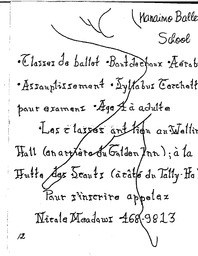 Nanaimo Ballet
School
• Classes de ballet • Bont de
• Assouplissement • Syllabus Cecchetti
pour examens • Age 4 à adulte
• Les classes ont lieu au Wellin
Hall (en arrière du Golden Inn); à la
Hutte des Scouts (à côté du Tally-Ho
Pour s'inscrire appelez
Nicole Meadows 168-9823
12